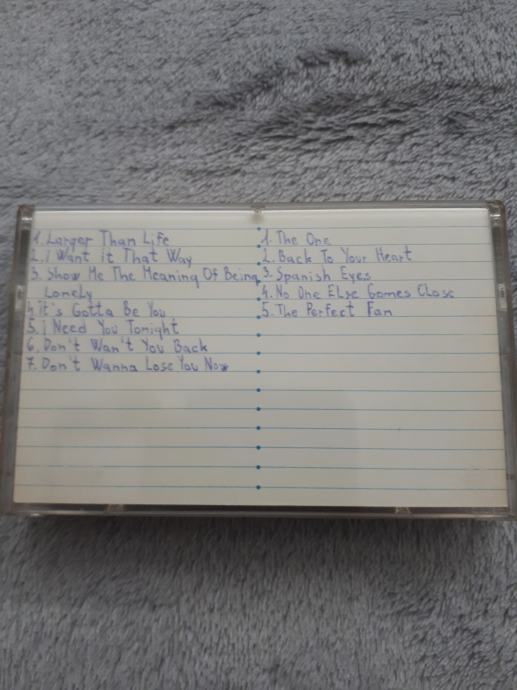 1. Larger Than Life
2. I Want it That Way
3. Show Me The Meaning Of Being
Lonely
4. It's Gotta Be You
5. I Need You Tonight
6. Don't Wan't You Back
7. Don't Wanna Lose You Now
1. The One
2. Back To Your Heart
3. Spanish Eyes
4. No One Else Comes Close
5. The Perfect Fan